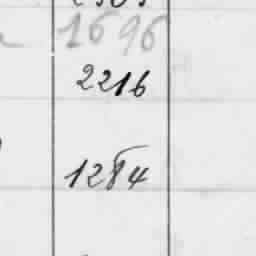 1696
2216
1284